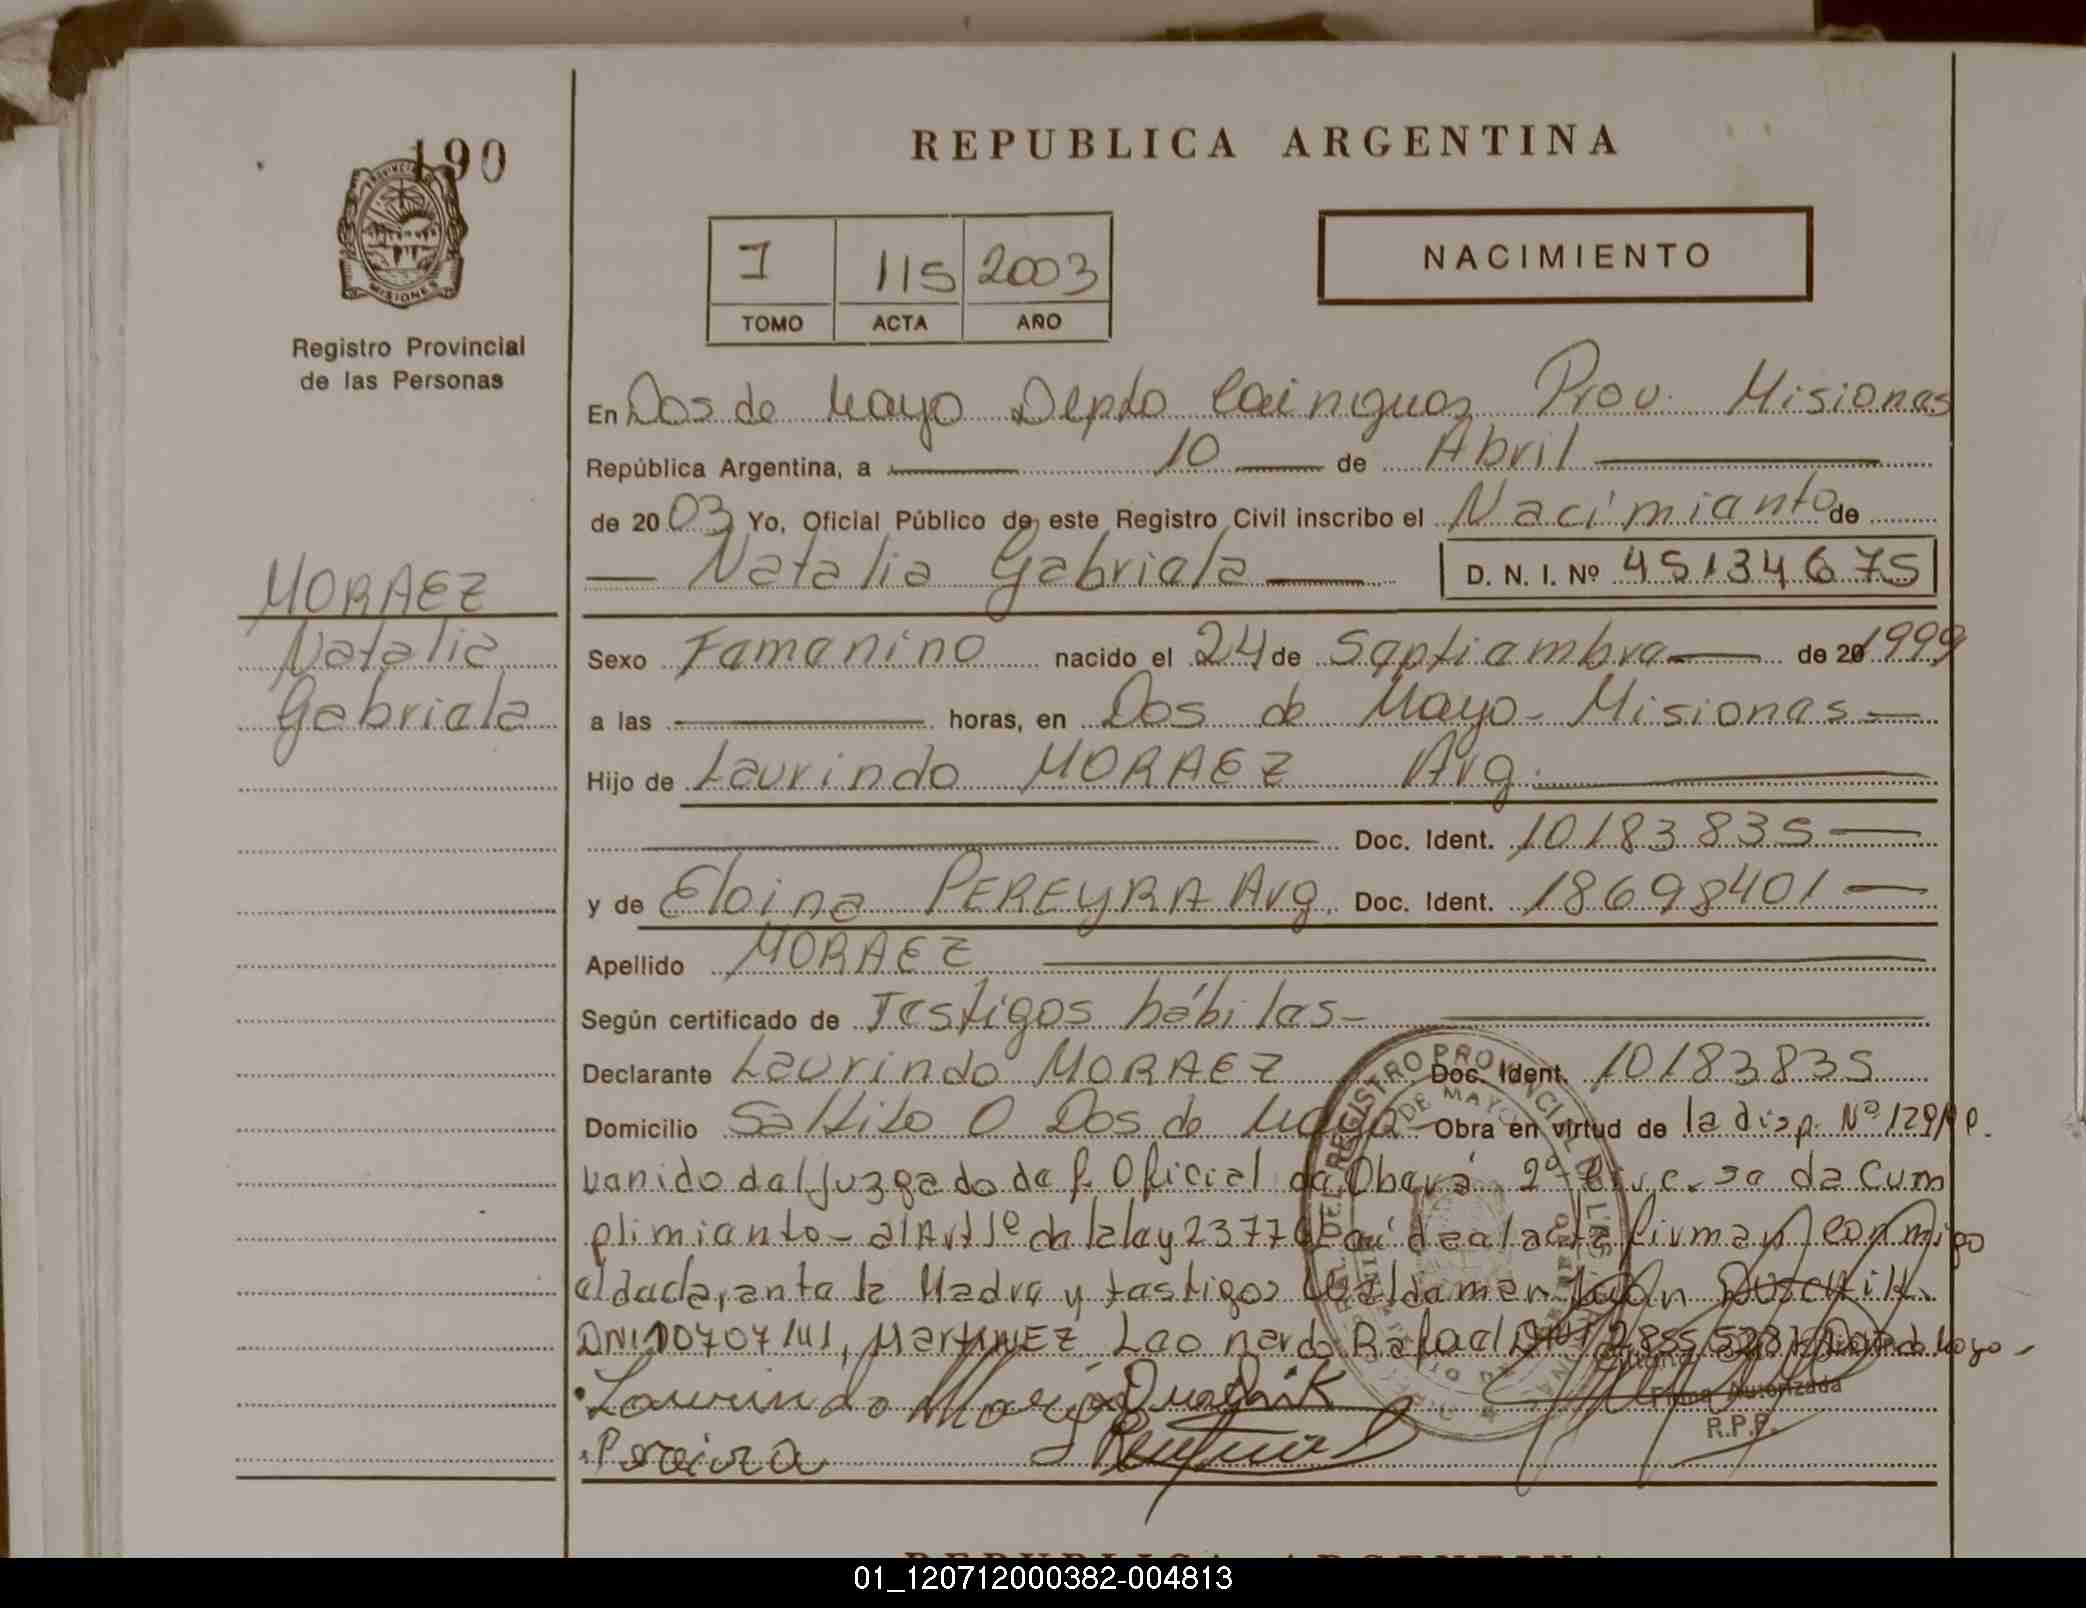 190
REPUBLICA ARGENTINA
PROVINCIA
MISIONES
Registro Provincial
de las Personas
NACIMIENTO
I 115 2003
TOMO ACTA AÑO
En Dos de Mayo Depto Cainguas Prov. Misiones
República Argentina, a 10 de Abril
de 2003 Yo, Oficial Público de este Registro Civil inscribo el Nacimiento de
Natalia Gabriela D. N. I. Nº 45134675
MORAEZ
Natalia
Gabriela
Sexo Femenino nacido el 24 de Septiembre de 20 1999
a las horas, en Dos de Mayo - Misiones
Hijo de Laurindo MORAEZ Arg.
Doc. Ident. 10183835
y de Eloina PEREYRA Arg. Doc. Ident. 18698401
Apellido MORAEZ
Según certificado de Testigos hábiles
Declarante Laurindo MORAEZ Doc. Ident. 10183835
Domicilio Saltito Dos de Mayo Obra en virtud de la disp. Nº 129
venido del Juzgado de Oficial de Oberá 2º se da cum
plimiento - al Art 1º de la ley 23776 el acta firman conmigo
el dacla, ante la Madre y testigos Waldemar
DNI 10707141, MARTINEZ Leonardo Rafael DNI Dos de Mayo -
Laurindo Duschik
Pereira
Firma Autorizada
R.P.P.
REPUBLICA ARGENTINA
01_120712000382-004813